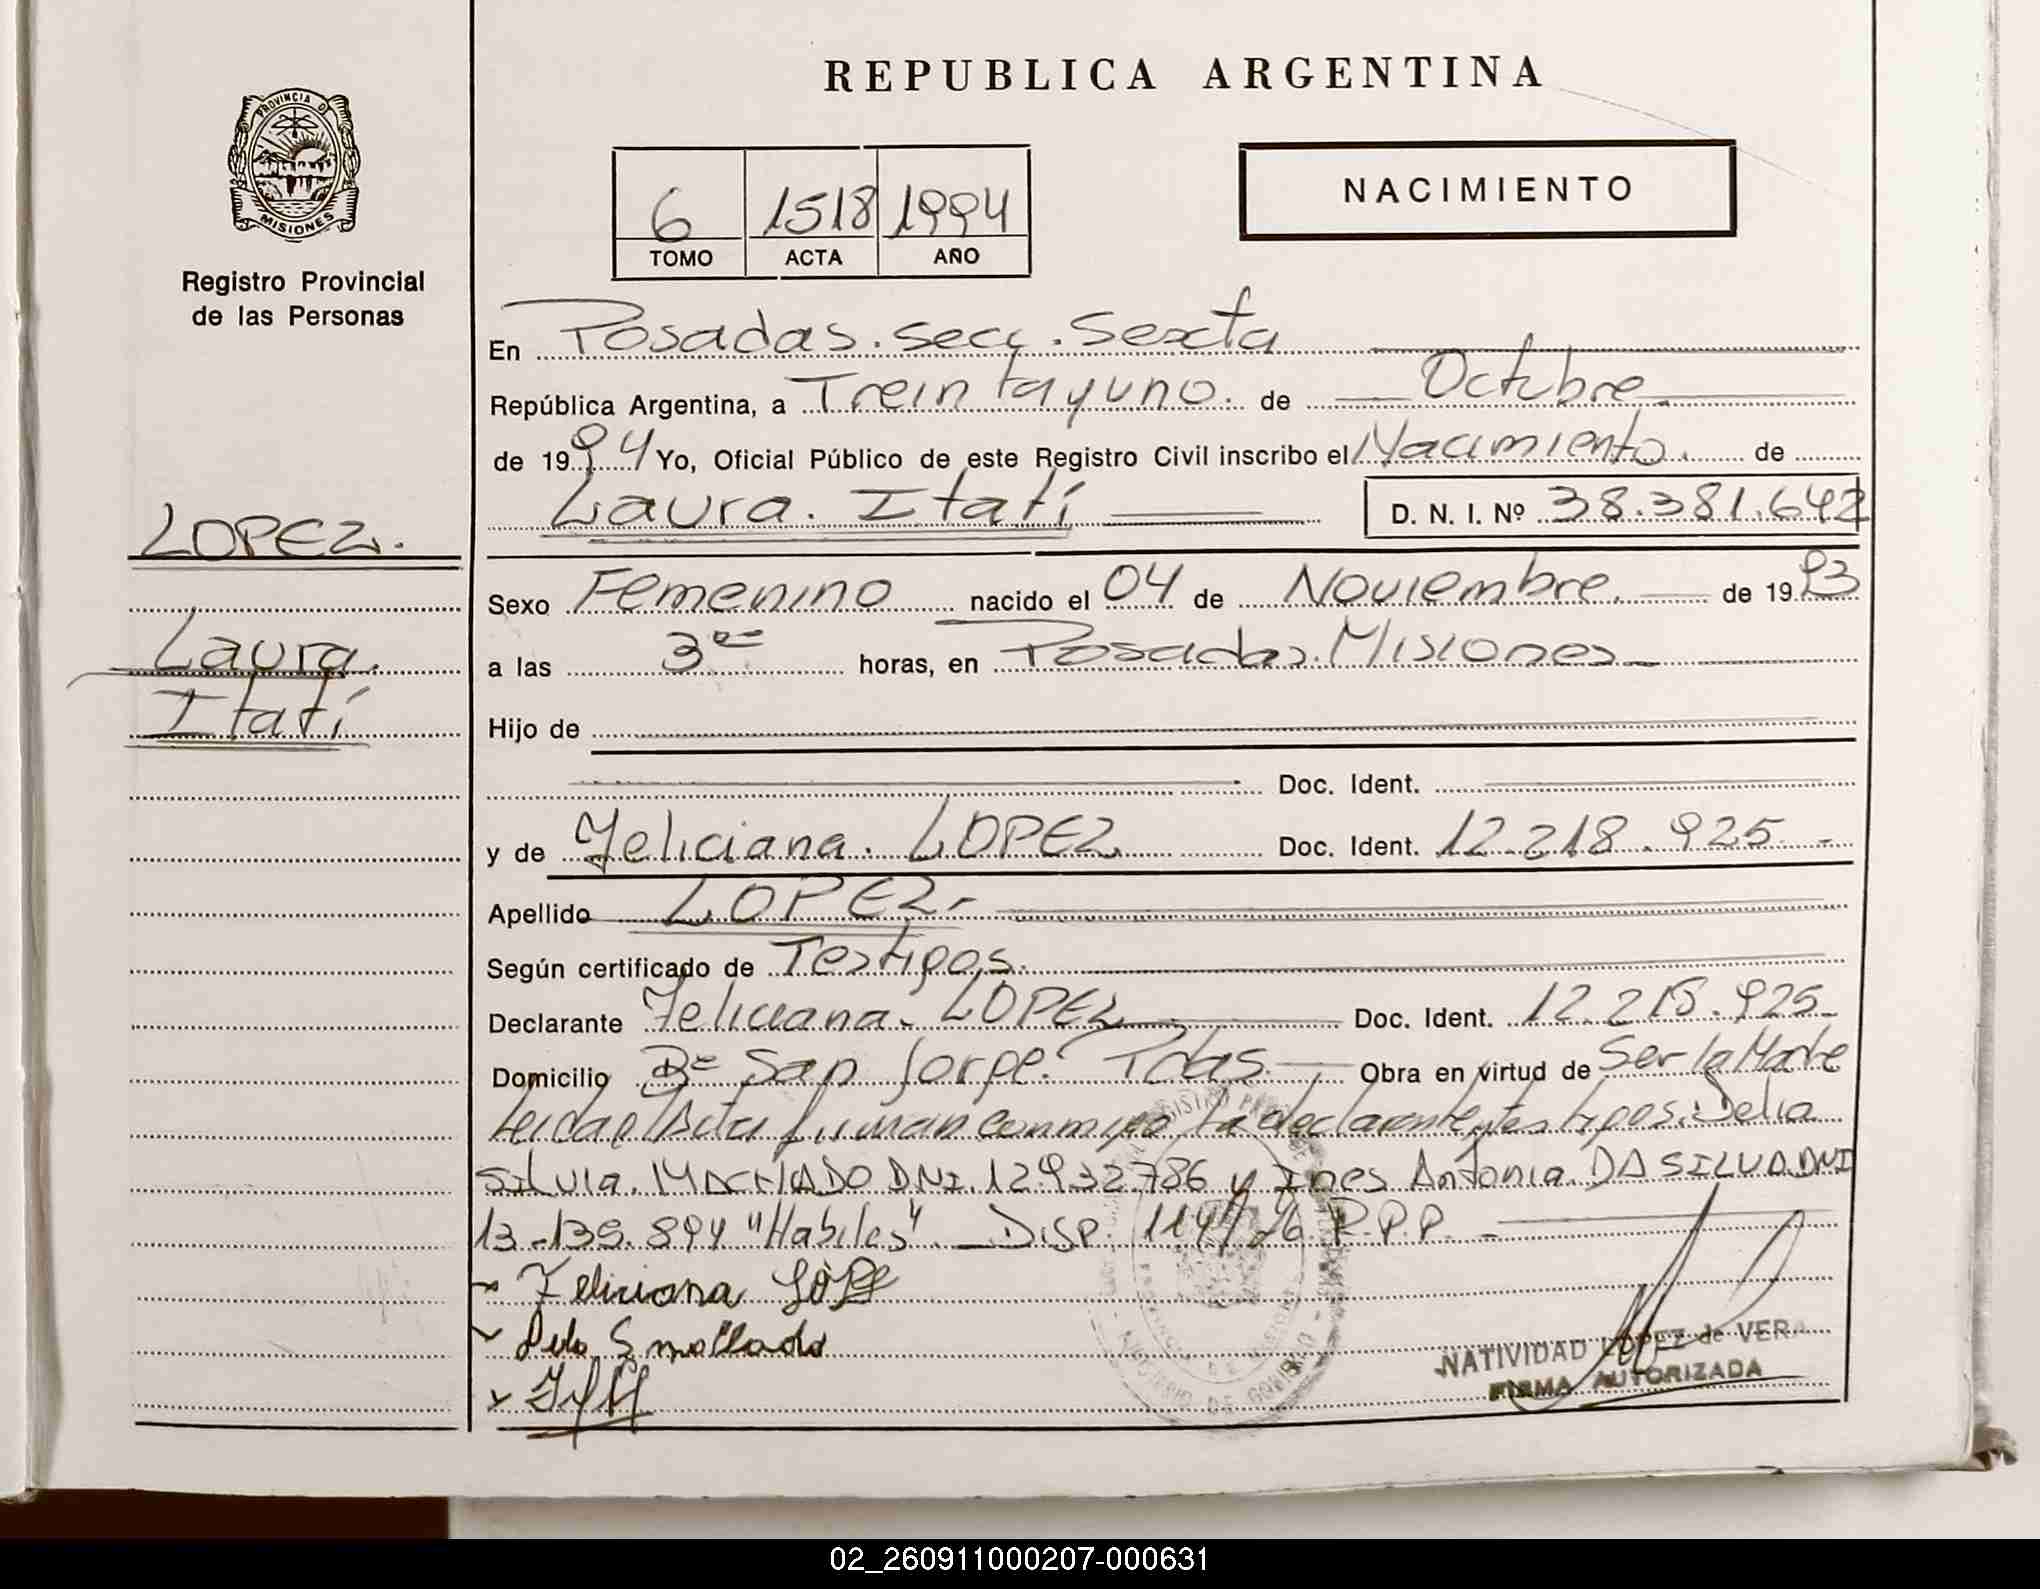 REPUBLICA ARGENTINA
PROVINCIA DE
MISIONES
Registro Provincial
de las Personas
6 1518 1994
TOMO ACTA AÑO
NACIMIENTO
En Posadas. Secc. Sexta
República Argentina, a Treintayuno. de Octubre.
de 1994 Yo, Oficial Público de este Registro Civil inscribo el Nacimiento. de
Laura. Itatí D. N. I. Nº 38.381.642
LOPEZ.
Laura.
Itatí
Sexo Femenino nacido el 04 de Noviembre. de 1993
a las 3 horas, en Posadas. Misiones
Hijo de
Doc. Ident.
y de Feliciana. LOPEZ Doc. Ident. 12.218.925.-
Apellido LOPEZ.-
Según certificado de Testigos.
Declarante Feliciana. LOPEZ Doc. Ident. 12.218.925-
Domicilio Bº San Jorge. Pdas. Obra en virtud de Ser la Madre
Leida el Acta firman conmigo la declarante y testigos: Delia
Silvia. MACHADO DNI. 12.932786 y Ines Antonia. DA SILVA. DNI
13-135.894 "Habiles". Disp. 114/76 R.P.P. -
Feliciana Lópe
NATIVIDAD LOPEZ de VERA
FIRMA AUTORIZADA
02_260911000207-000631